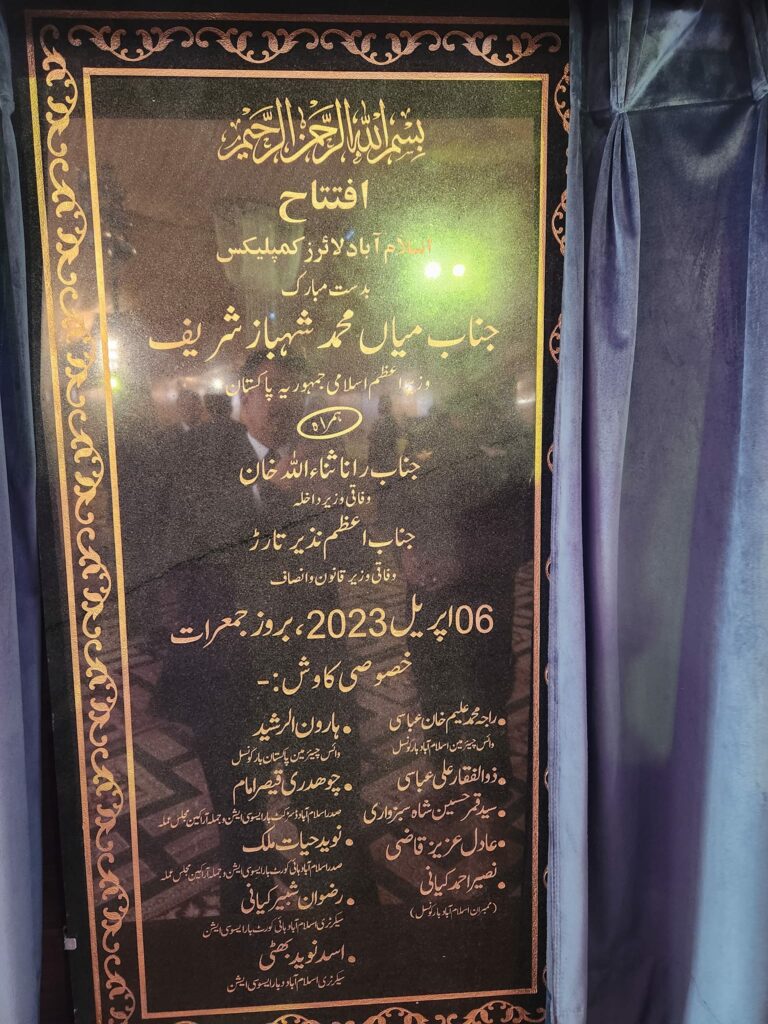 بسم اللہ الرحمن الرحیم
افتتاح
اسلام آباد لائرز کمپلیکس
بدست مبارک
جناب میاں محمد شہباز شریف
وزیر اعظم اسلامی جمہوریہ پاکستان
ہمراہ
جناب رانا ثناء اللہ خان
وفاقی وزیر داخلہ
جناب اعظم نذیر تارڑ
وفاقی وزیر قانون و انصاف
06 اپریل 2023، بروز جمعرات
خصوصی کاوش :-
• راجہ محمد علیم خان عباسی
وائس چیئرمین اسلام آباد بار کونسل
• ذوالفقار علی عباسی
• سید قمر حسین شاہ سبزواری
• عادل عزیز قاضی
• نصیر احمد کیانی
(ممبران اسلام آباد بار کونسل)
• ہارون الرشید
وائس چیئرمین پاکستان بار کونسل
• چوھدری قیصر امام
صدر اسلام آباد ڈسٹرکٹ بار ایسوسی ایشن و جملہ اراکین مجلس عاملہ
• نوید حیات ملک
صدر اسلام آباد ہائی کورٹ بار ایسوسی ایشن و جملہ اراکین مجلس عاملہ
• رضوان شبیر کیانی
سیکرٹری اسلام آباد ہائی کورٹ بار ایسوسی ایشن
• اسد نوید بھٹی
سیکرٹری اسلام آباد و بار ایسوسی ایشن